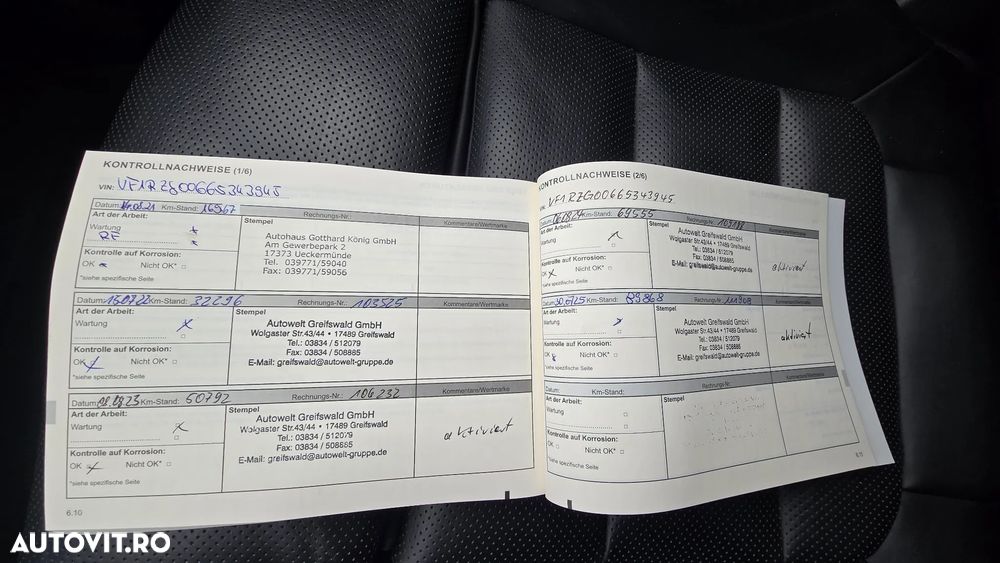 KONTROLLNACHWEISE (1/6)
VIN:
Datum: Km-Stand: 16967 Rechnungs-Nr.:
Art der Arbeit: Stempel Kommentare/Wertmarke
Wartung
Autohaus Gotthard König GmbH
Am Gewerbepark 2
17373 Ueckermünde
Tel. 039771/59040
Fax: 039771/59056
Kontrolle auf Korrosion:
OK Nicht OK*
*siehe spezifische Seite
Datum: 15.07.22 Km-Stand: 32296 Rechnungs-Nr.: 103525
Art der Arbeit: Stempel Kommentare/Wertmarke
Wartung
Autowelt Greifswald GmbH
Wolgaster Str.43/44 • 17489 Greifswald
Tel.: 03834 / 512079
Fax: 03834 / 508885
E-Mail: greifswald@autowelt-gruppe.de
Kontrolle auf Korrosion:
OK Nicht OK*
*siehe spezifische Seite
Datum: Km-Stand: 50792 Rechnungs-Nr.: 106232
Art der Arbeit: Stempel Kommentare/Wertmarke
Wartung
Autowelt Greifswald GmbH
Wolgaster Str.43/44 • 17489 Greifswald
Tel.: 03834 / 512079
Fax: 03834 / 508885
E-Mail: greifswald@autowelt-gruppe.de
aktiviert
Kontrolle auf Korrosion:
OK Nicht OK*
*siehe spezifische Seite
6.10
KONTROLLNACHWEISE (2/6)
VIN: VF1RZG00665343945
Datum: Km-Stand: 69555 Rechnungs-Nr.:
Art der Arbeit: Stempel Kommentare/Wertmarke
Wartung
Autowelt Greifswald GmbH
Wolgaster Str.43/44 • 17489 Greifswald
Tel.: 03834 / 512079
Fax: 03834 / 508885
E-Mail: greifswald@autowelt-gruppe.de
aktiviert
Kontrolle auf Korrosion:
OK Nicht OK*
*siehe spezifische Seite
Datum: 30.07.25 Km-Stand: 89868 Rechnungs-Nr.: 111908
Art der Arbeit: Stempel Kommentare/Wertmarke
Wartung
Autowelt Greifswald GmbH
Wolgaster Str.43/44 • 17489 Greifswald
Tel.: 03834 / 512079
Fax: 03834 / 508885
E-Mail: greifswald@autowelt-gruppe.de
aktiviert
Kontrolle auf Korrosion:
OK Nicht OK*
*siehe spezifische Seite
Datum: Km-Stand: Rechnungs-Nr.:
Art der Arbeit: Stempel Kommentare/Wertmarke
Wartung
Kontrolle auf Korrosion:
OK Nicht OK*
*siehe spezifische Seite
6.11
AUTOVIT.RO